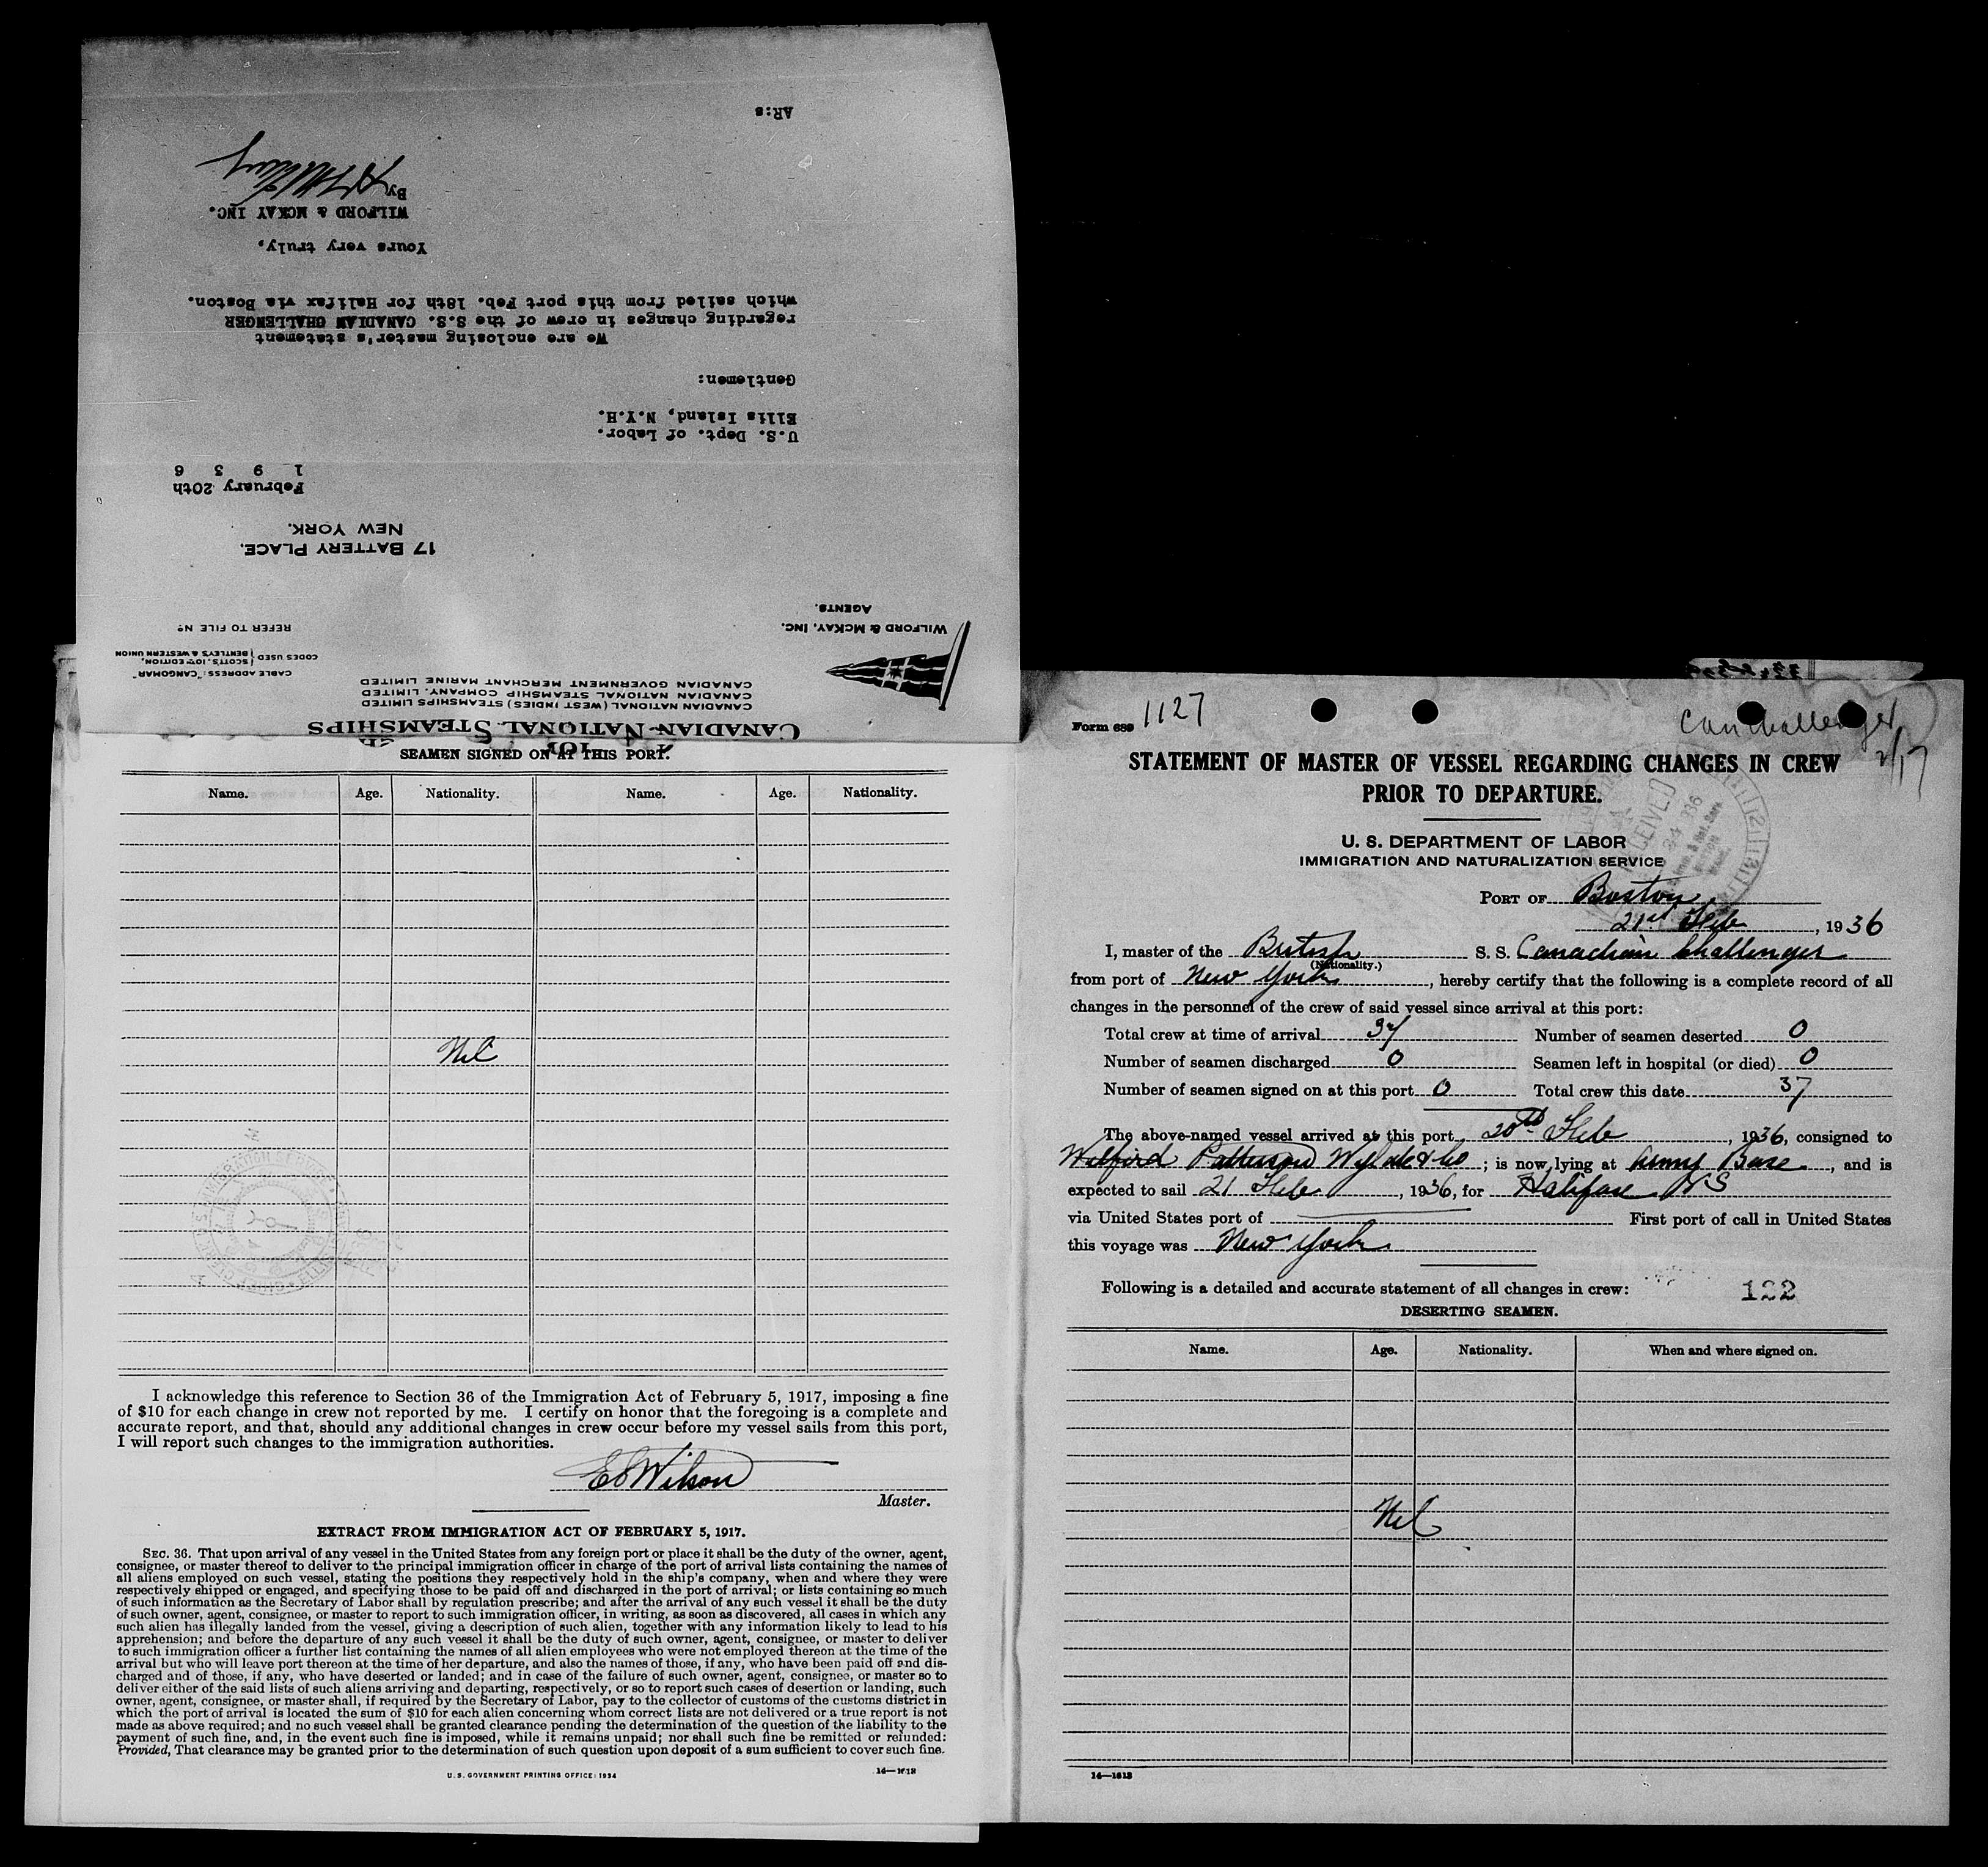 CANADIAN NATIONAL STEAMSHIPS
CANADIAN NATIONAL (WEST INDIES) STEAMSHIPS LIMITED
CANADIAN NATIONAL STEAMSHIP COMPANY, LIMITED
CANADIAN GOVERNMENT MERCHANT MARINE LIMITED
WILFORD & MCKAY, INC.
AGENTS.
CABLE ADDRESS: "CANGOMAR"
CODES USED { SCOTT'S, 10TH EDITION,
BENTLEY'S & WESTERN UNION
REFER TO FILE No
17 BATTERY PLACE.
NEW YORK.
February 20th
1 9 3 6
U.S. Dept. of Labor.
Ellis Island, N.Y.H.
Gentlemen:
We are enclosing master's statement
regarding changes in crew of the S.S. CANADIAN CHALLENGER
which sailed from this port Feb. 18th for Halifax via Boston.
Yours very truly,
WILFORD & MCKAY INC.
By
AR:s
SEAMEN SIGNED ON AT THIS PORT.
Name. Age. Nationality. Name. Age. Nationality.
Nil
I acknowledge this reference to Section 36 of the Immigration Act of February 5, 1917, imposing a fine
of $10 for each change in crew not reported by me. I certify on honor that the foregoing is a complete and
accurate report, and that, should any additional changes in crew occur before my vessel sails from this port,
I will report such changes to the immigration authorities.
Wilson
Master.
EXTRACT FROM IMMIGRATION ACT OF FEBRUARY 5, 1917.
SEC. 36. That upon arrival of any vessel in the United States from any foreign port or place it shall be the duty of the owner, agent,
consignee, or master thereof to deliver to the principal immigration officer in charge of the port of arrival lists containing the names of
all aliens employed on such vessel, stating the positions they respectively hold in the ship's company, when and where they were
respectively shipped or engaged, and specifying those to be paid off and discharged in the port of arrival; or lists containing so much
of such information as the Secretary of Labor shall by regulation prescribe; and after the arrival of any such vessel it shall be the duty
of such owner, agent, consignee, or master to report to such immigration officer, in writing, as soon as discovered, all cases in which any
such alien has illegally landed from the vessel, giving a description of such alien, together with any information likely to lead to his
apprehension; and before the departure of any such vessel it shall be the duty of such owner, agent, consignee, or master to deliver
to such immigration officer a further list containing the names of all alien employees who were not employed thereon at the time of the
arrival but who will leave port thereon at the time of her departure, and also the names of those, if any, who have been paid off and dis-
charged and of those, if any, who have deserted or landed; and in case of the failure of such owner, agent, consignee, or master so to
deliver either of the said lists of such aliens arriving and departing, respectively, or so to report such cases of desertion or landing, such
owner, agent, consignee, or master shall, if required by the Secretary of Labor, pay to the collector of customs of the customs district in
which the port of arrival is located the sum of $10 for each alien concerning whom correct lists are not delivered or a true report is not
made as above required; and no such vessel shall be granted clearance pending the determination of the question of the liability to the
payment of such fine, and, in the event such fine is imposed, while it remains unpaid; nor shall such fine be remitted or refunded:
Provided, That clearance may be granted prior to the determination of such question upon deposit of a sum sufficient to cover such fine.
U.S. GOVERNMENT PRINTING OFFICE: 1934
14—1613
Form 689 1127
Can Challenger
2/17
STATEMENT OF MASTER OF VESSEL REGARDING CHANGES IN CREW
PRIOR TO DEPARTURE.
RECEIVED
U. S. DEPARTMENT OF LABOR
IMMIGRATION AND NATURALIZATION SERVICE
PORT OF Boston
21st Feb, 1936
I, master of the British S. S. Canadian Challenger
(Nationality.)
from port of New York, hereby certify that the following is a complete record of all
changes in the personnel of the crew of said vessel since arrival at this port:
Total crew at time of arrival 37 Number of seamen deserted 0
Number of seamen discharged 0 Seamen left in hospital (or died) 0
Number of seamen signed on at this port 0 Total crew this date 37
The above-named vessel arrived at this port 20th Feb, 1936, consigned to
Wilford Patterson Wylde & Co; is now lying at Army Base, and is
expected to sail 21 Feb, 1936, for Halifax NS
via United States port of First port of call in United States
this voyage was New York
Following is a detailed and accurate statement of all changes in crew: 122
DESERTING SEAMEN.
Name. Age. Nationality. When and where signed on.
Nil
14—1613